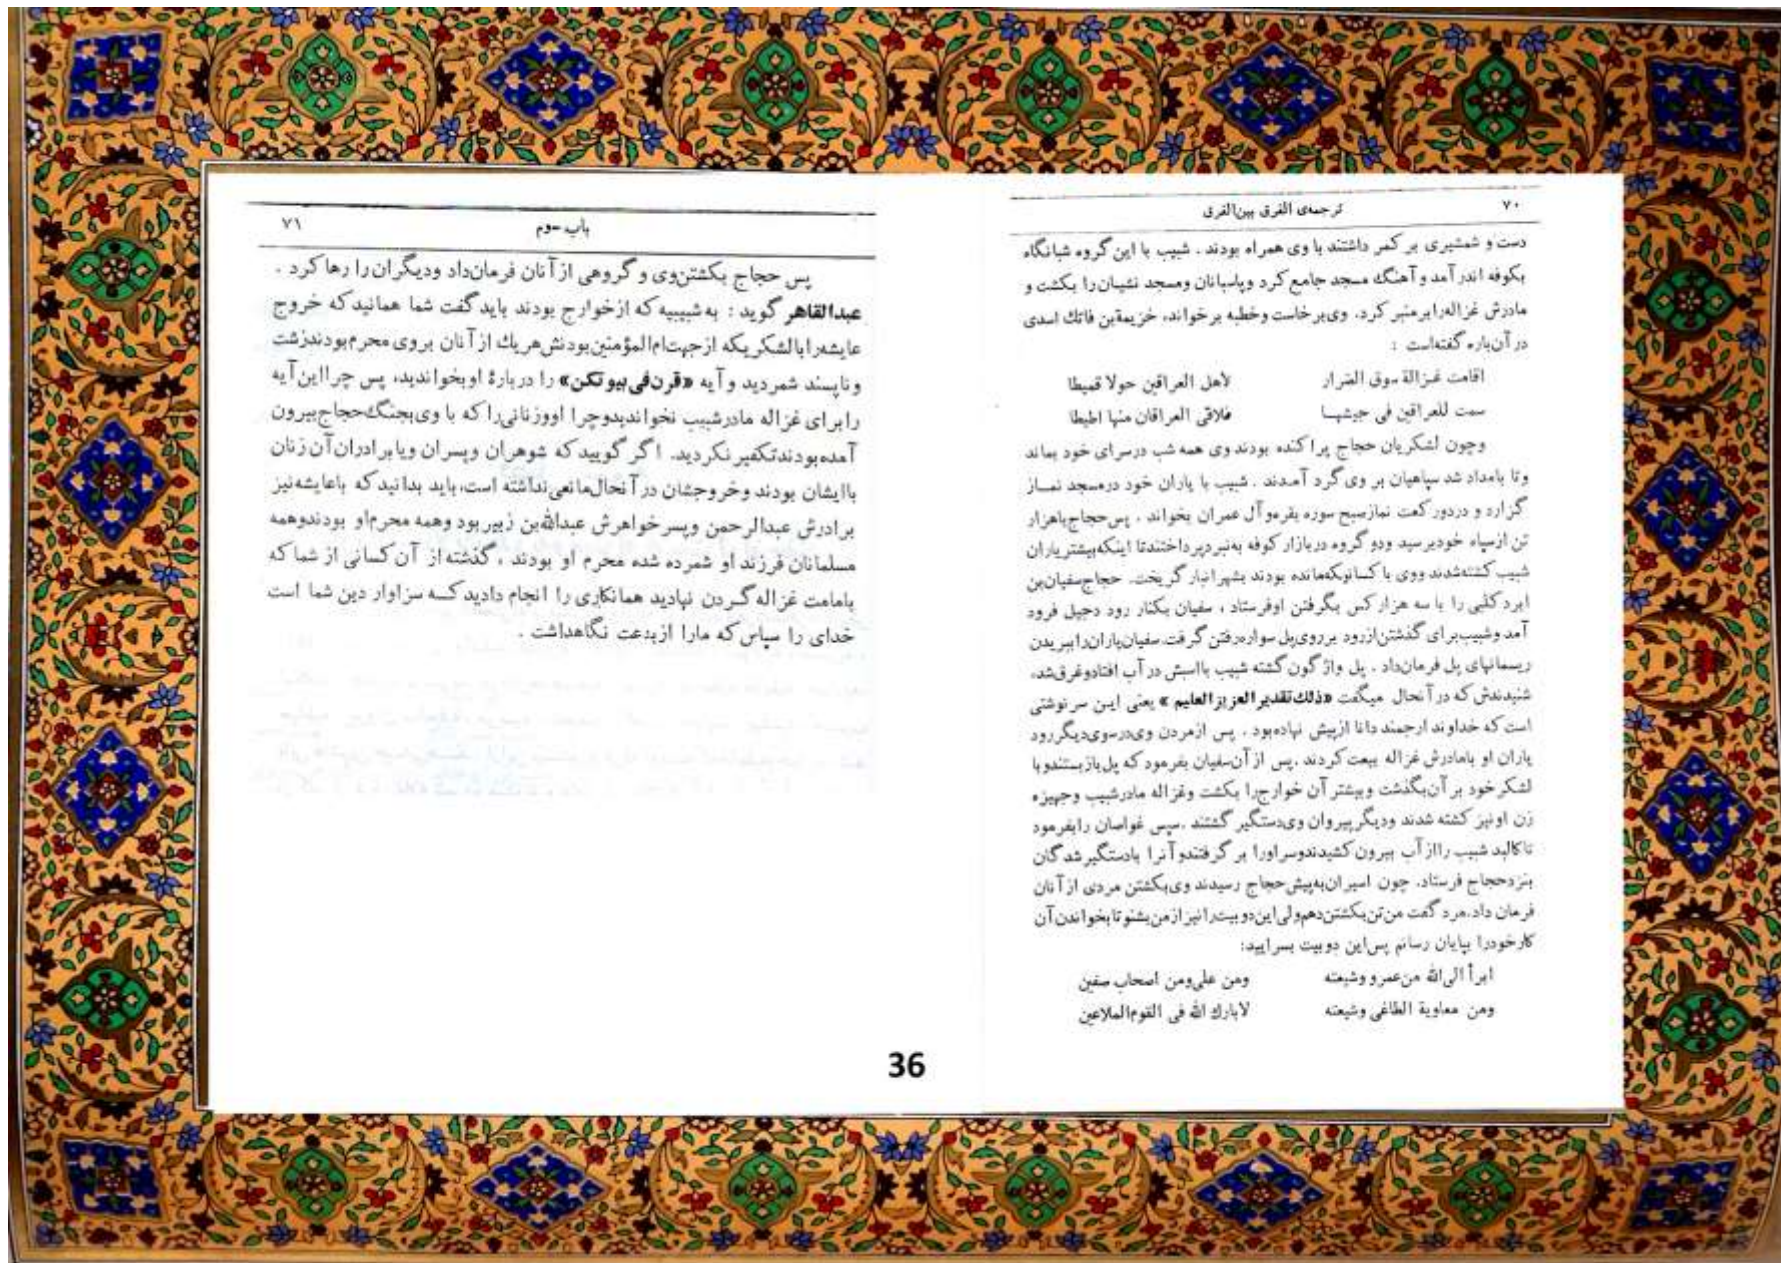 ۷۰ ترجمه‌ی الفرق بین‌الفرق
دست و شمشیری بر کمر داشتند با وی همراه بودند . شبیب با این گروه شبانگاه
بکوفه اندر آمد و آهنگ مسجد جامع کرد وپاسبانان ومسجد نشینان را بکشت و
مادرش غزاله‌رابر منبر کرد. وی‌برخاست وخطبه برخواند، خزیمةبن فاتك اسدی
در آن‌باره گفته‌است :
اقامت غـزالة سوق الضرار لاهل العراقین حولا قمیطا
سمت للعراقین فی جیشهـا فلاقی العراقان منها اطیطا
وچون لشکریان حجاج پراکنده بودند وی همه شب درسرای خود بماند
وتا بامداد شد سپاهیان بر وی گرد آمـدند . شبیب با یاران خود درمسجد نمـاز
گزارد و دردورکعت نمازصبح سوره بقره‌وآل عمران بخواند . پس‌حجاج‌باهزار
تن ازسپاه خودبرسید ودو گروه دربازار کوفه به‌نبردپرداختندتا اینکه‌بیشتریاران
شبیب کشته‌شدند ووی با کسانیکه‌مانده بودند بشهر انبار گریخت. حجاج‌سفیان‌بن
ابرد کلبی را با سه هزار کس بگرفتن اوفرستاد ، سفیان بکنار رود دجیل فرود
آمد وشبیب‌برای گذشتن‌ازرود برروی‌پل سواره‌رفتن گرفت.سفیان‌یاران‌راببریدن
ریسمانهای پل فرمان‌داد . پل واژ گون گشته شبیب بااسبش در آب افتادوغرق‌شد،
شنیدندش که در آنحال میگفت «ذلك تقدیر العزیز العلیم » یعنی ایـن سرنوشتی
است که خداوند ارجمند دانا ازپیش نهاده‌بود . پس ازمردن وی‌درسوی‌دیگررود
یاران او بامادرش غزاله بیعت کردند .پس از آن‌سفیان بفرمود که پل‌بازبستندوبا
لشکر خود بر آن‌بگذشت وبیشتر آن خوارج‌را بکشت وغزاله مادرشبیب وجهیزه
زن اونیز کشته شدند ودیگر پیروان وی‌دستگیر گشتند .سپس غواصان رابفرمود
تاکالبد شبیب رااز آب بیرون کشیدندوسراورا بر گرفتندو آنرا بادستگیر شدگان
بنزدحجاج فرستاد. چون اسیران‌به‌پیش‌حجاج رسیدند وی‌بکشتن مردی از آنان
فرمان داد.مرد گفت من‌تن‌بکشتن‌دهم‌ولی‌این‌دوبیت‌رانیز ازمن‌بشنو تابخواندن آن
کارخودرا بپایان رسانم پس‌این دوبیت بسرایید:
ابرأ الی‌الله من‌عمرو وشیعته ومن علی‌ومن اصحاب صفین
ومن معاویة الطاغی وشیعته لابارك الله فی القوم‌الملاعین
باب سوم ۷۱
پس حجاج بکشتن‌وی و گروهی از آنان فرمان‌داد ودیگران را رها کرد .
عبدالقاهر گوید : به‌شبیبیه که ازخوارج بودند باید گفت شما همانید که خروج
عایشه‌رابالشکریکه ازجهت‌ام‌المؤمنین‌بودنش‌هریك از آنان بروی‌محرم‌بودندزشت
و ناپسند شمردید و آیه «قرن‌فی‌بیوتکن» را دربارهٔ اوبخواندید، پس چرااین‌آیه
رابرای غزاله مادرشبیب نخواندیدوچرا اووزنانی‌را که با وی‌بجنگ‌حجاج‌بیرون
آمده‌بودندتکفیر نکردید. اگر گویید که شوهران وپسران ویابرادران‌آن زنان
باایشان بودند وخروجشان در آنحال‌مانعی‌نداشته است، باید بدانید که باعایشه‌نیز
برادرش عبدالرحمن وپسرخواهرش عبدالله‌بن زبیر بود وهمه محرم‌او بودندوهمه
مسلمانان فرزند او شمرده شده محرم او بودند . گذشته از آن کسانی از شما که
بامامت غزاله گـردن نهادید همانکاری را انجام دادید کـه سزاوار دین شما است
خدای را سپاس که مارا ازبدعت نگاهداشت .
36